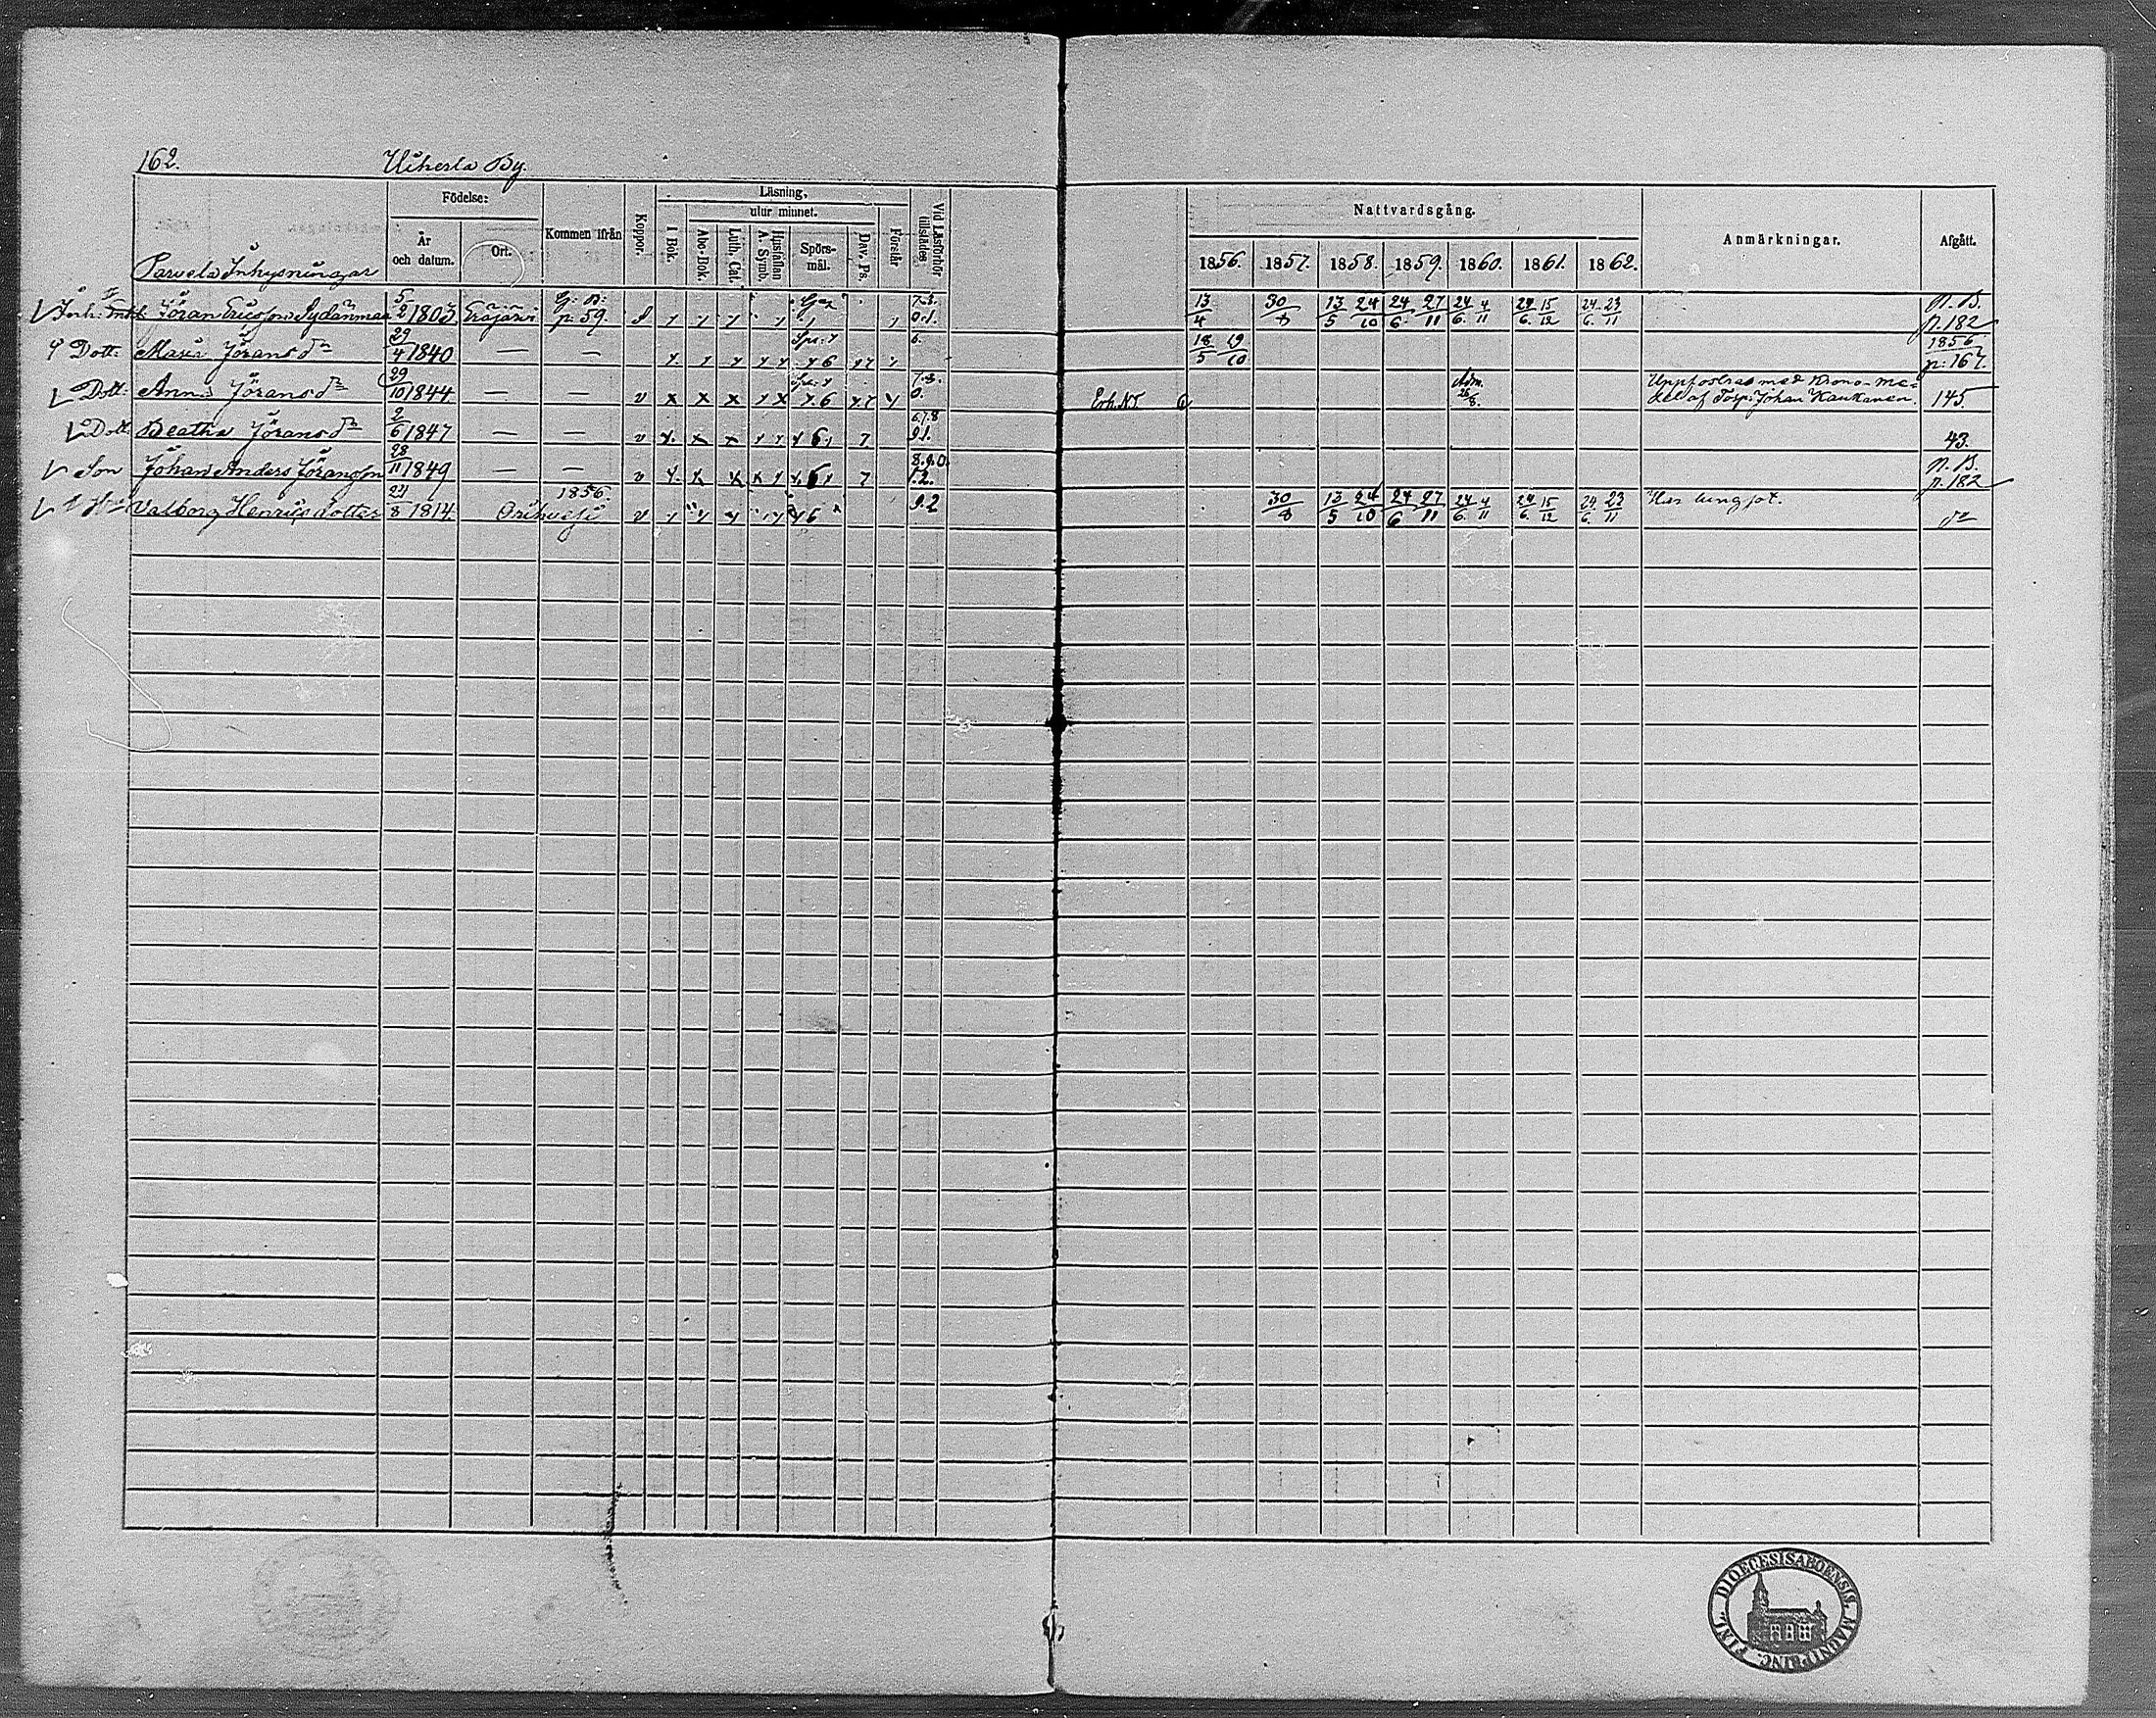 162. Uiherla By.
Födelse: Läsning, Nattvardsgång.
utur minnet.
År och datum. Ort. Kommen ifrån Koppor. I Bok. Abc-Bok. Luth. Cat. Hustaflan A. Symb. Spörs-mål. Dav. Ps. Förstår Vid Läsförhör tillstädes 1856. 1857. 1858. 1859. 1860. 1861. 1862. Anmärkningar. Afgått.
Parvela Inhysningar
Inh. Enkl. Jöran Ericsson Sydänmaa 5/2 1803 Eräjärvi G. B: p. 59. 7.8. 0.1. 13/4 30/8 13/5 24/10 24/6 27/11 24/6 4/11 24/6 15/12 24/6 23/11 N. B. p. 182
Dott: Maria Jöransdr 29/4 1840 — — 6. 18/5 19/10 1856 p: 167.
Dott: Anna Jöransdr 29/10 1844 — — v x x x 7.8. 0. Erh. N.T. Adm. 26/8. Uppfostras med Krono-me-del af Torp: Johan Kaukanen. 145.
Dott. Beatha Jöransdr 2/6 1847 — — v 6.7.8 9.1. 43.
Son Johan Anders Jöransson 28/11 1849 — — v 8.9.0. 1.2. N. B. p. 182
Hu Valborg Henricsdotter 21/8 1814. Orihvesi 1856. v 9.2 30/8 13/5 24/10 24/6 27/11 24/6 4/11 24/6 15/12 24/6 23/11 Har lungsot. do
FINL. DIOECESIS ABOENSIS. MAGNI PRINC.